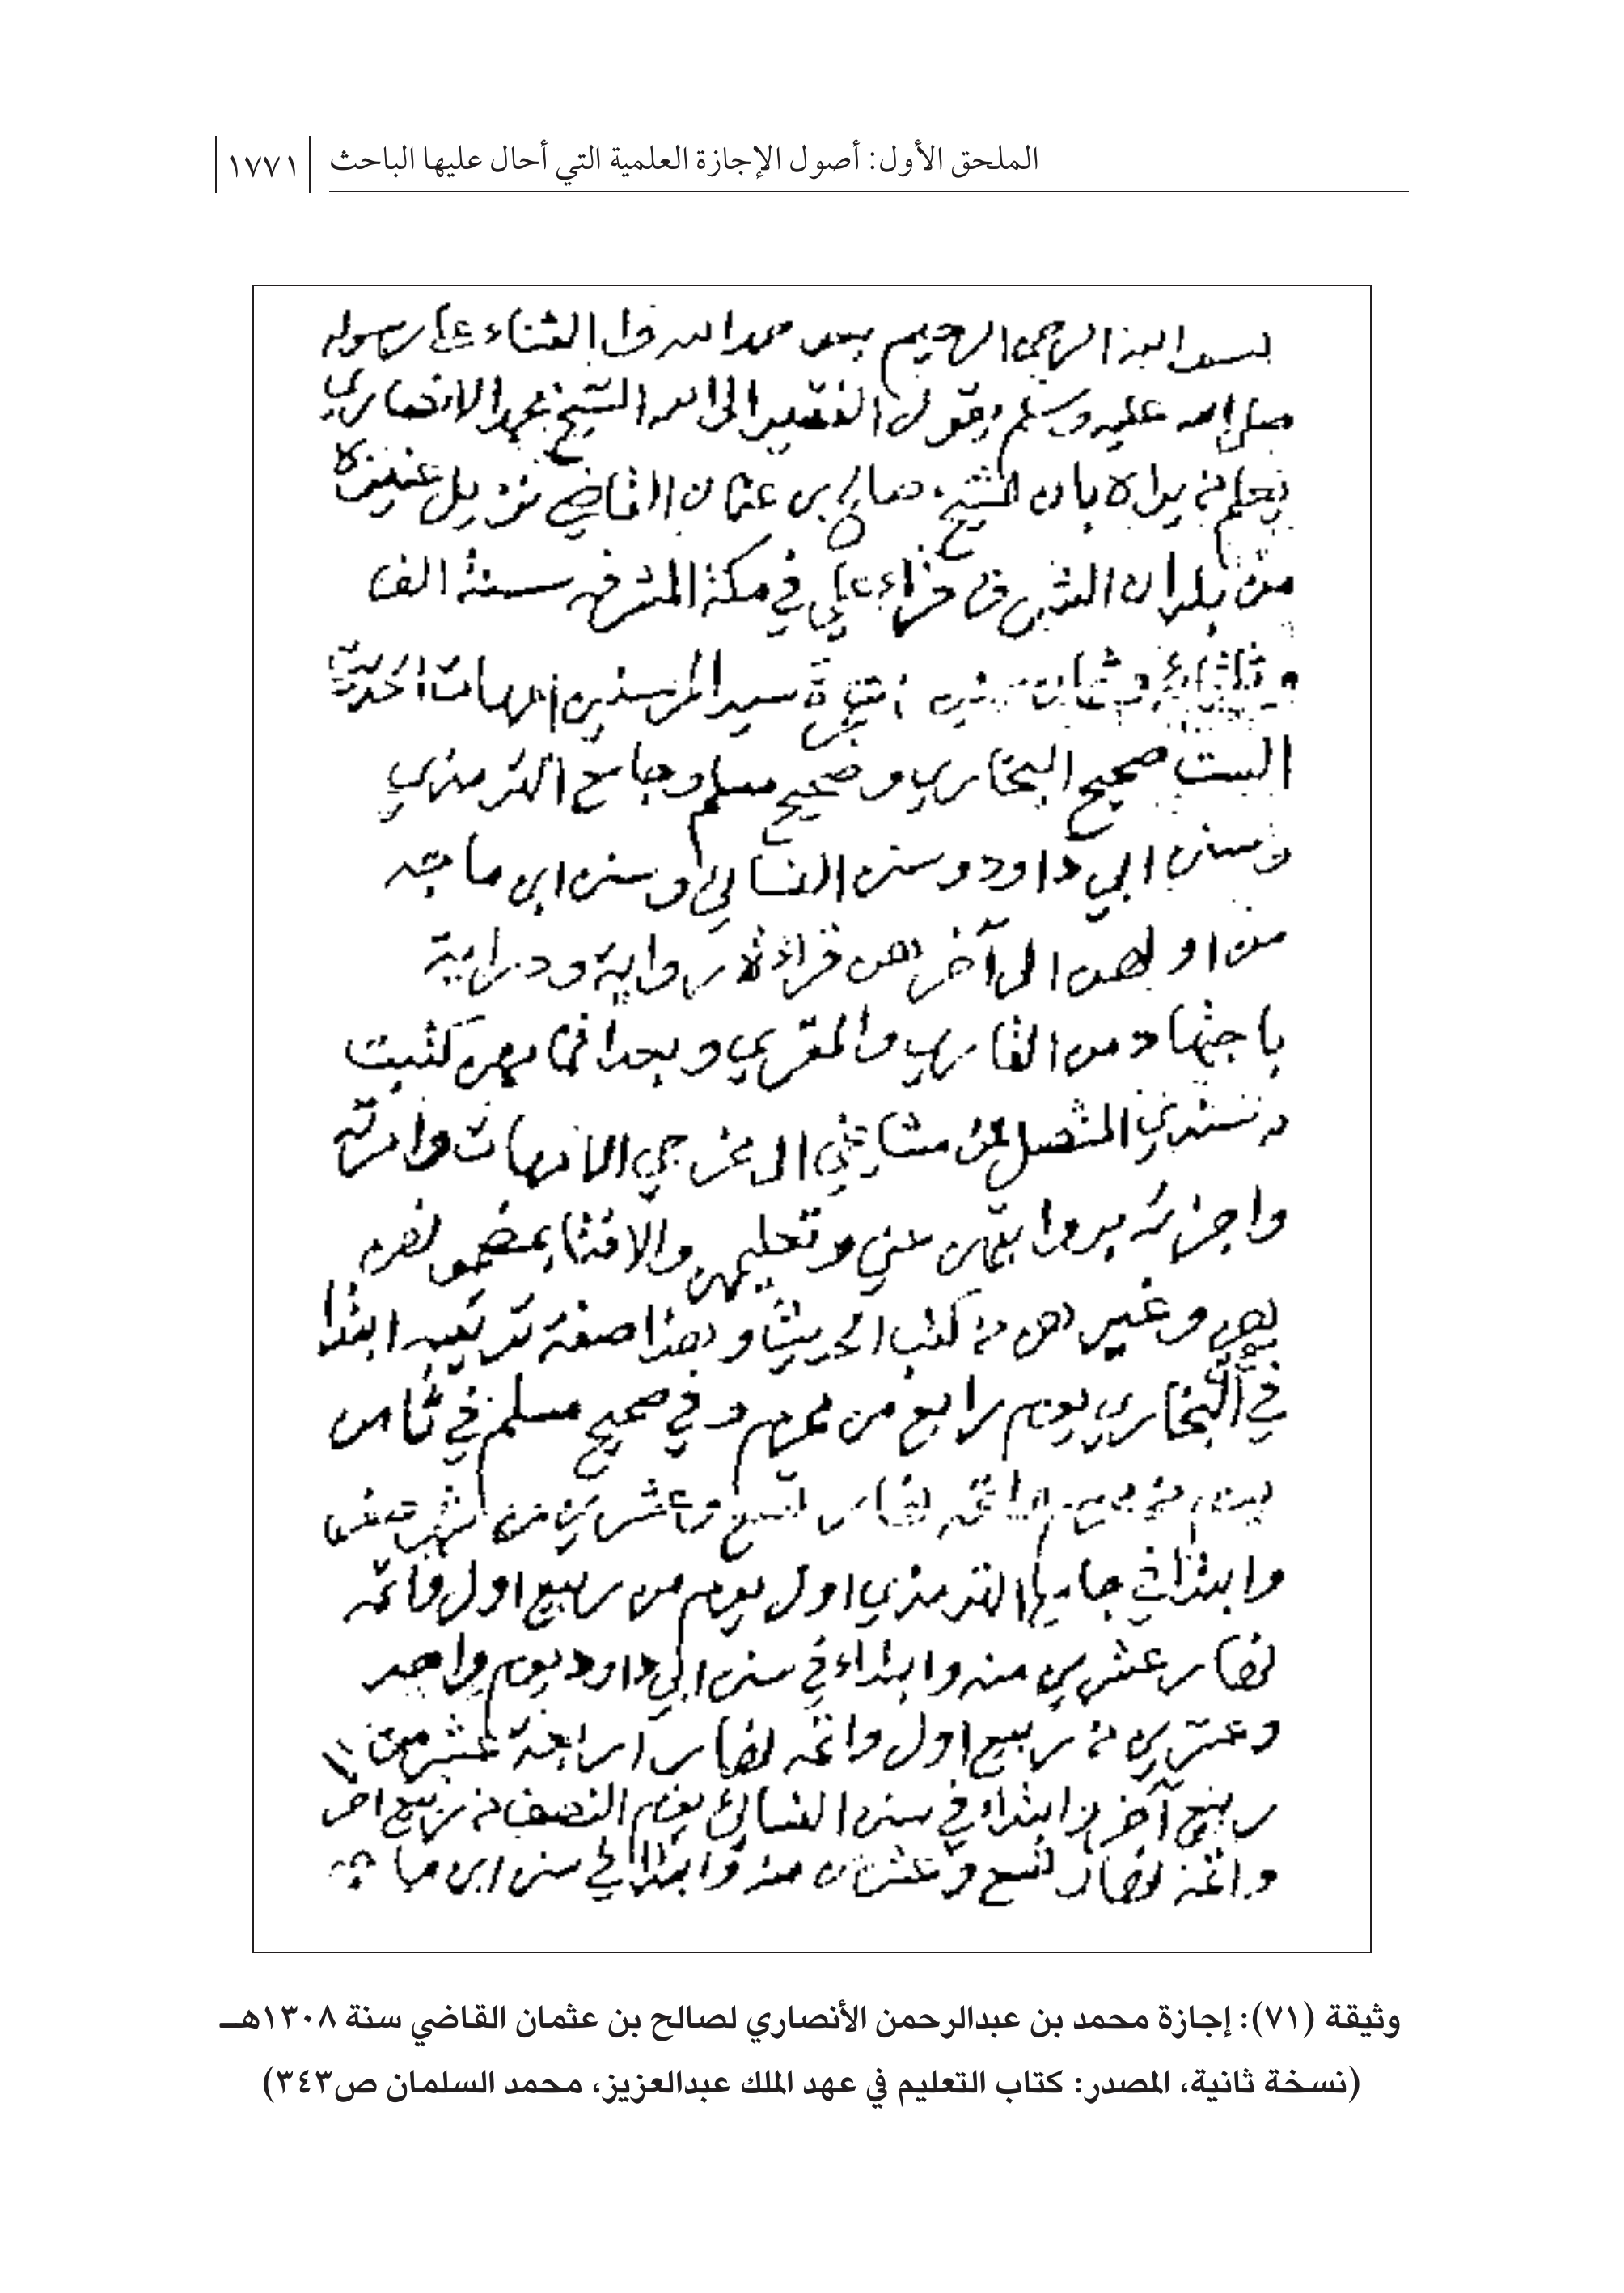 الملحق الأول: أصول الإجازة العلمية التي أحال عليها الباحث ١٧٧١
بسم الله الرحمن الرحيم بعد حمد الله والثناء على رسوله
صلى الله عليه وسلم يقول الفقير الى الله الشيخ محمد الانصاري
يعلم من يراه بان الشيخ صالح بن عثمان القاضي نزيل عنيزة
من بلدان الشرق قراء علي في مكة المشرفه سنة الف
وثلثمائة وثمان من هجرة سيد المرسلين امهات الحديث
الست صحيح البخاري وصحيح مسلم وجامع الترمذي
وسنن ابي داود وسنن النسائي وسنن ابن ماجه
من اولهن الى آخرهن قراءة رواية ودراية
باجتهاد من القاري والمقري وبعد اتمامهن كتبت
سندي المتصل عن مشايخي الى مخرجي الامهات وامرته
واجزته بروايتهن عني وتعليمهن والافتا بمضمونهن
بهن وغيرهن من كتب الحديث وهذا صفة ترتيبه ابتدا
في البخاري يوم رابع من محرم وفي صحيح مسلم في ثامن
واتمه نهار تسع وعشرين من شهر صفر
وابتدا في جامع الترمذي اول يوم من ربيع اول واتمه
نهار عشرين منه وابتداء في سنن ابي داود يوم واحد
وعشرين من ربيع اول واتمه نهار رابعة عشر من
ربيع آخر وابتداء في سنن النسائي يوم النصف من ربيع اخر
واتمه نهار تسع وعشرين منه وابتدا في سنن ابن ماجه
وثيقة (٧١): إجازة محمد بن عبدالرحمن الأنصاري لصالح بن عثمان القاضي سنة ١٣٠٨هـ
(نسخة ثانية، المصدر: كتاب التعليم في عهد الملك عبدالعزيز، محمد السلمان ص٣٤٣)